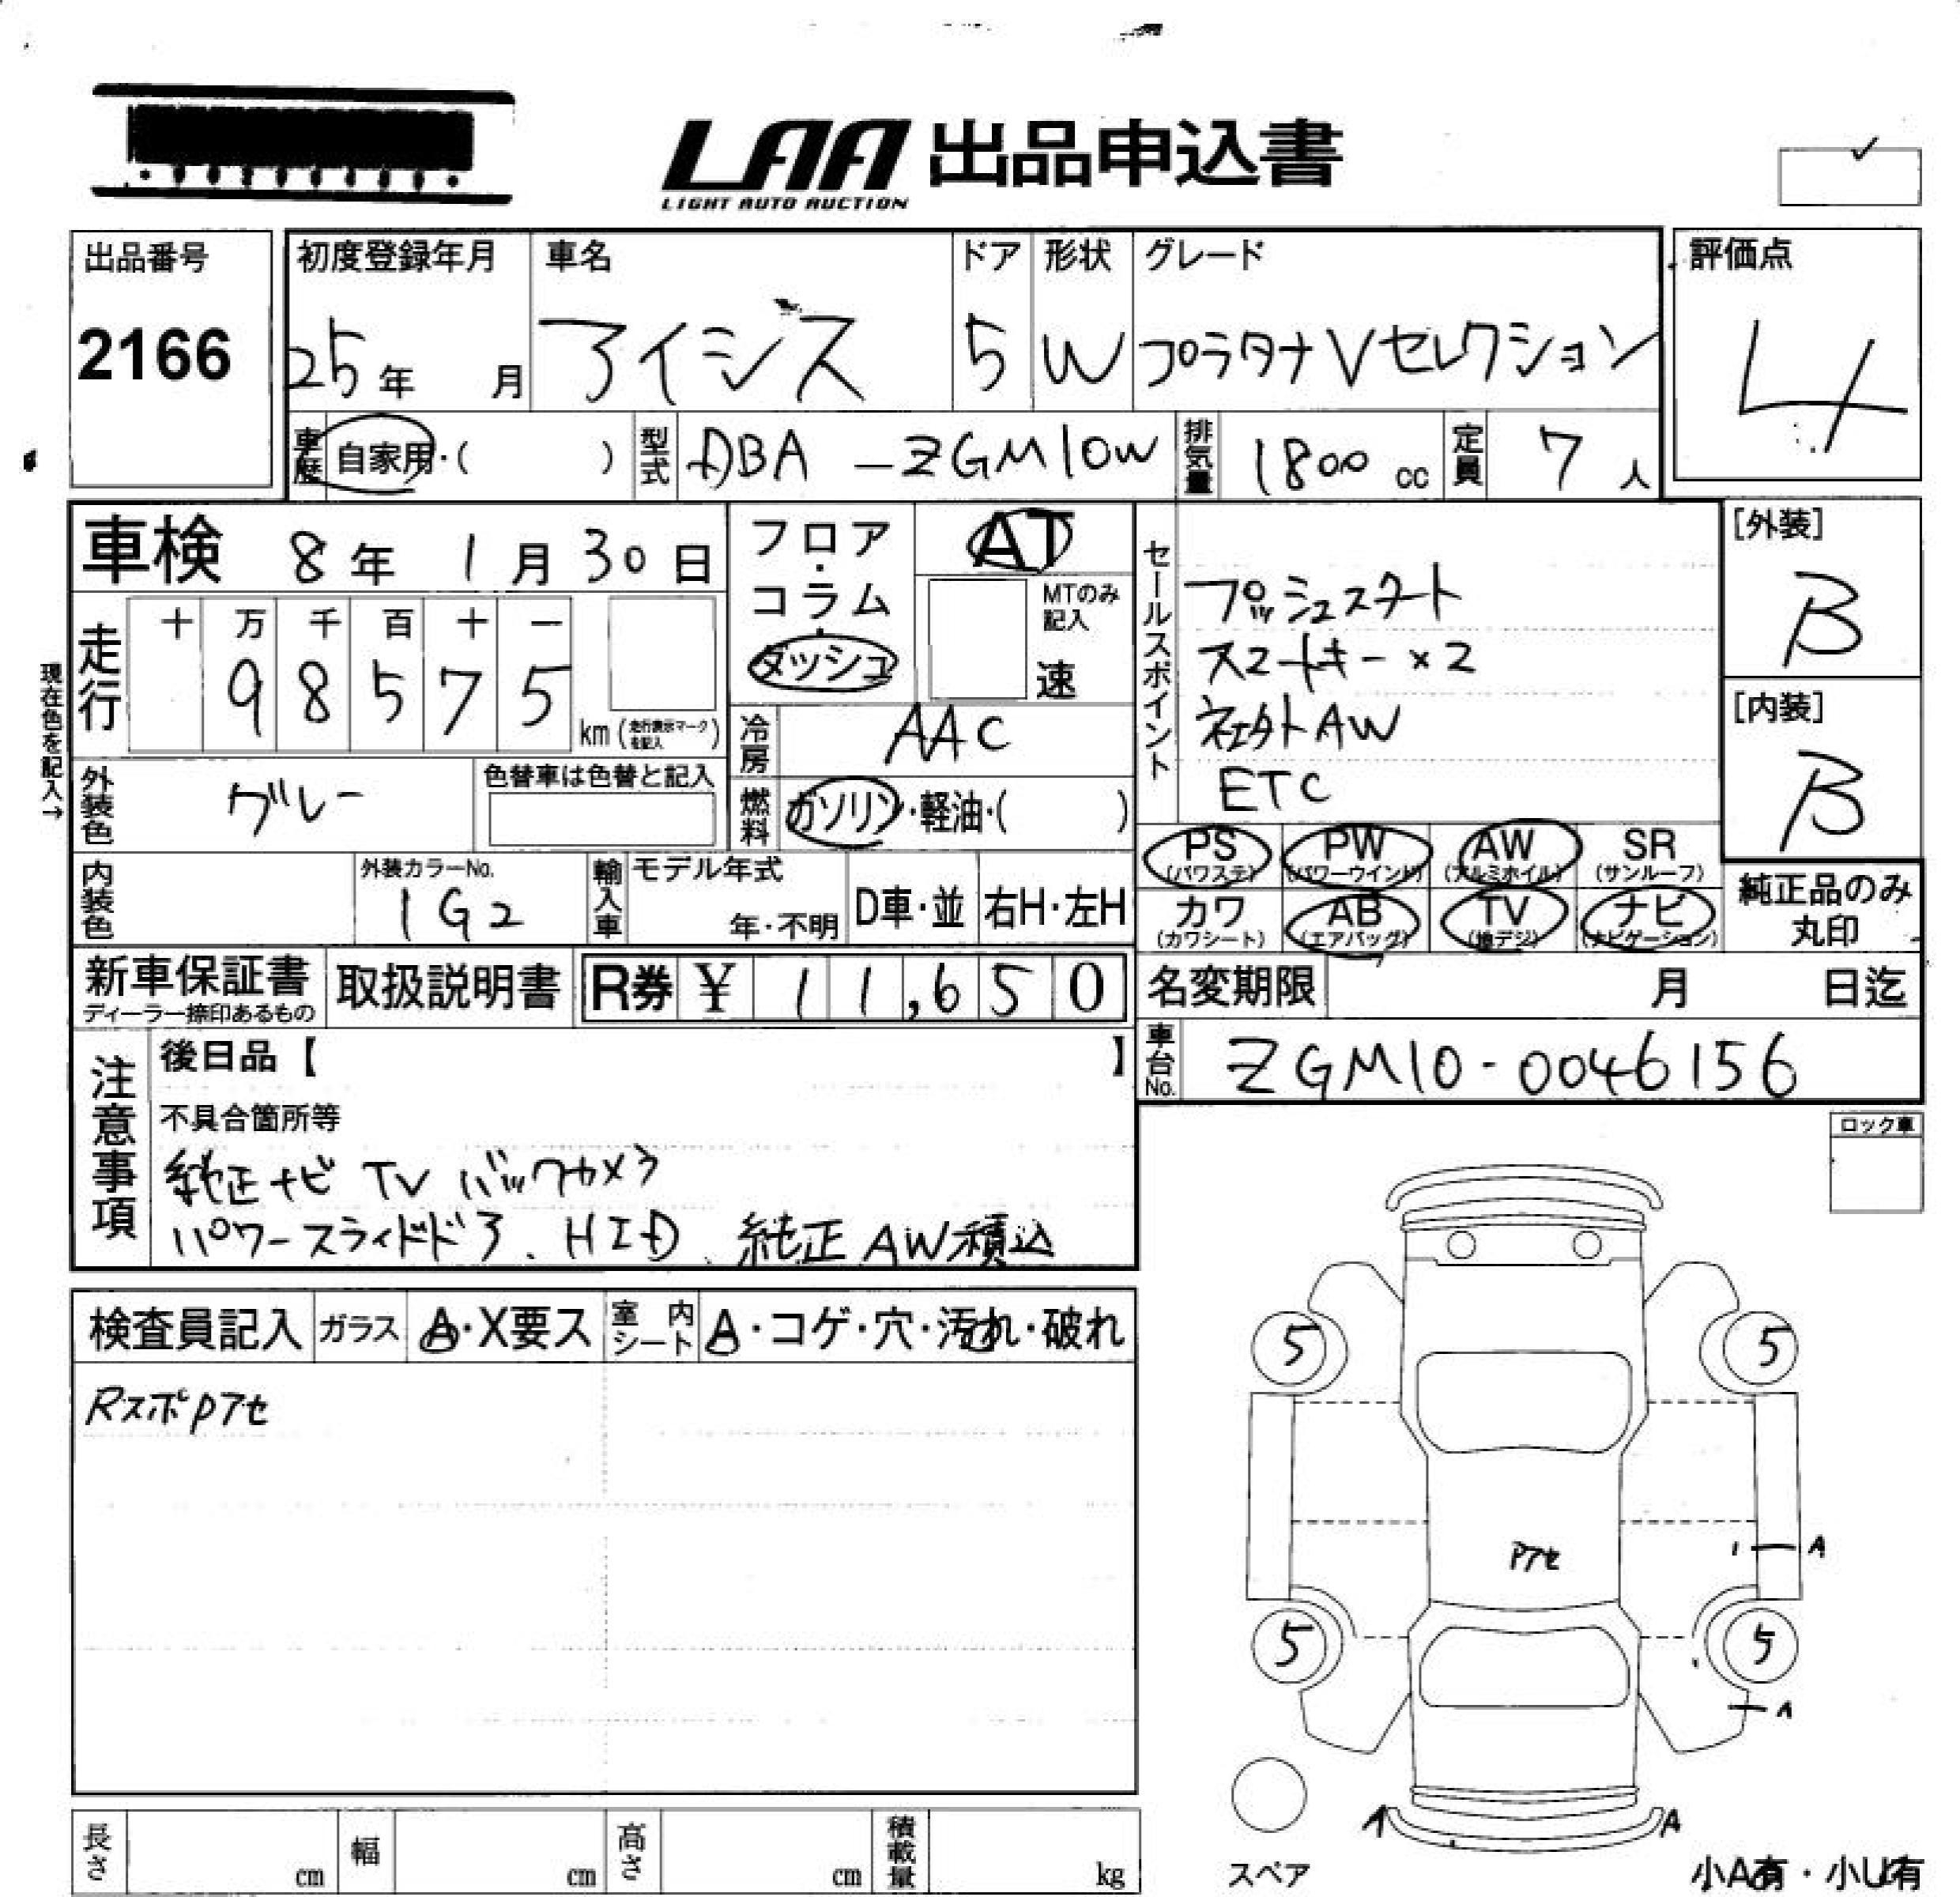 LAA 出品申込書
LIGHT AUTO AUCTION
出品番号
2166
初度登録年月
25年 月
車名
アイシス
ドア
5
形状
W
グレード
プラタナ Vセレクション
評価点
4
車歴 自家用・( )
型式 DBA -ZGM10W
排気量 1800 cc
定員 7 人
車検 8年 1月 30日
現在色を記入→
走行
十 万 千 百 十 一
9 8 5 7 5
km(走行表示マークを記入)
フロア・コラム・ダッシュ
AT
MTのみ記入
速
冷房 AAC
外装色 グレー
色替車は色替と記入
燃料 ガソリン・軽油・( )
内装色
外装カラーNo.
1G2
輸入車
モデル年式
年・不明
D車・並
右H・左H
新車保証書
ディーラー捺印あるもの
取扱説明書
R券 ¥ 11,650
セールスポイント
プッシュスタート
スマートキー ×2
社外AW
ETC
[外装]
B
[内装]
B
PS (パワステ)
PW (パワーウインド)
AW (アルミホイル)
SR (サンルーフ)
カワ (カワシート)
AB (エアバッグ)
TV (地デジ)
ナビ (ナビゲーション)
純正品のみ
丸印
名変期限 月 日迄
車台No. ZGM10-0046156
注意事項
後日品【 】
不具合箇所等
純正ナビ TV バックカメラ
パワースライドドア、HID、純正AW積込
ロック車
検査員記入 ガラス A・X要ス 室内シート A・コゲ・穴・汚れ・破れ
Rスポpアセ
5
5
Pアセ
A
5
5
A
A
A
スペア
小A有・小U有
長さ cm
幅 cm
高さ cm
積載量 kg